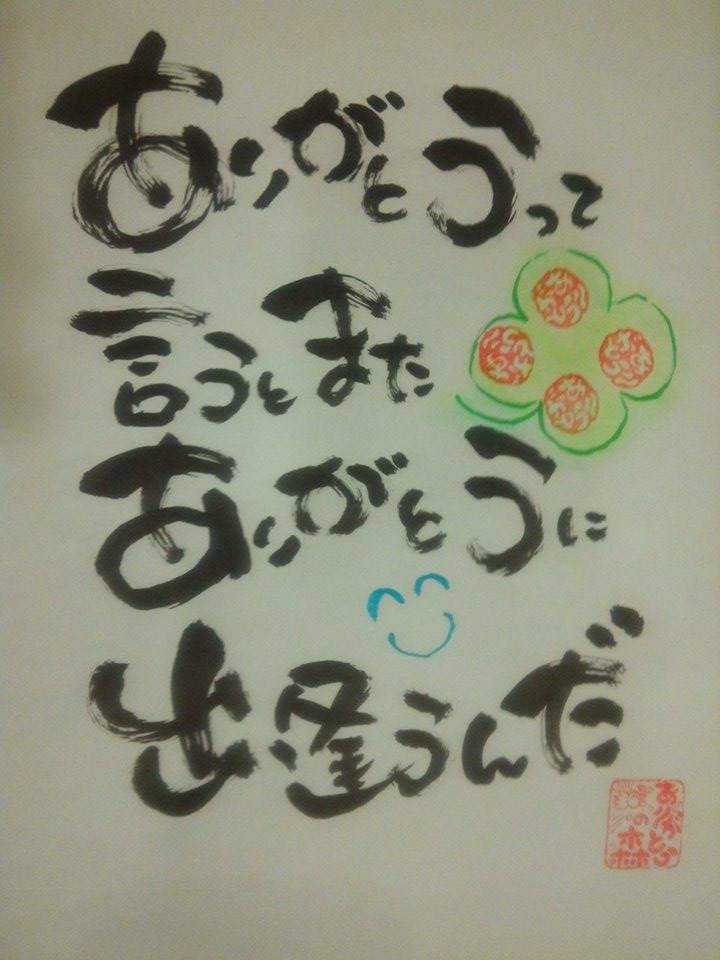 ありがとうって
言うとまた
ありがとうに
出逢うんだ
ありがとう
の森